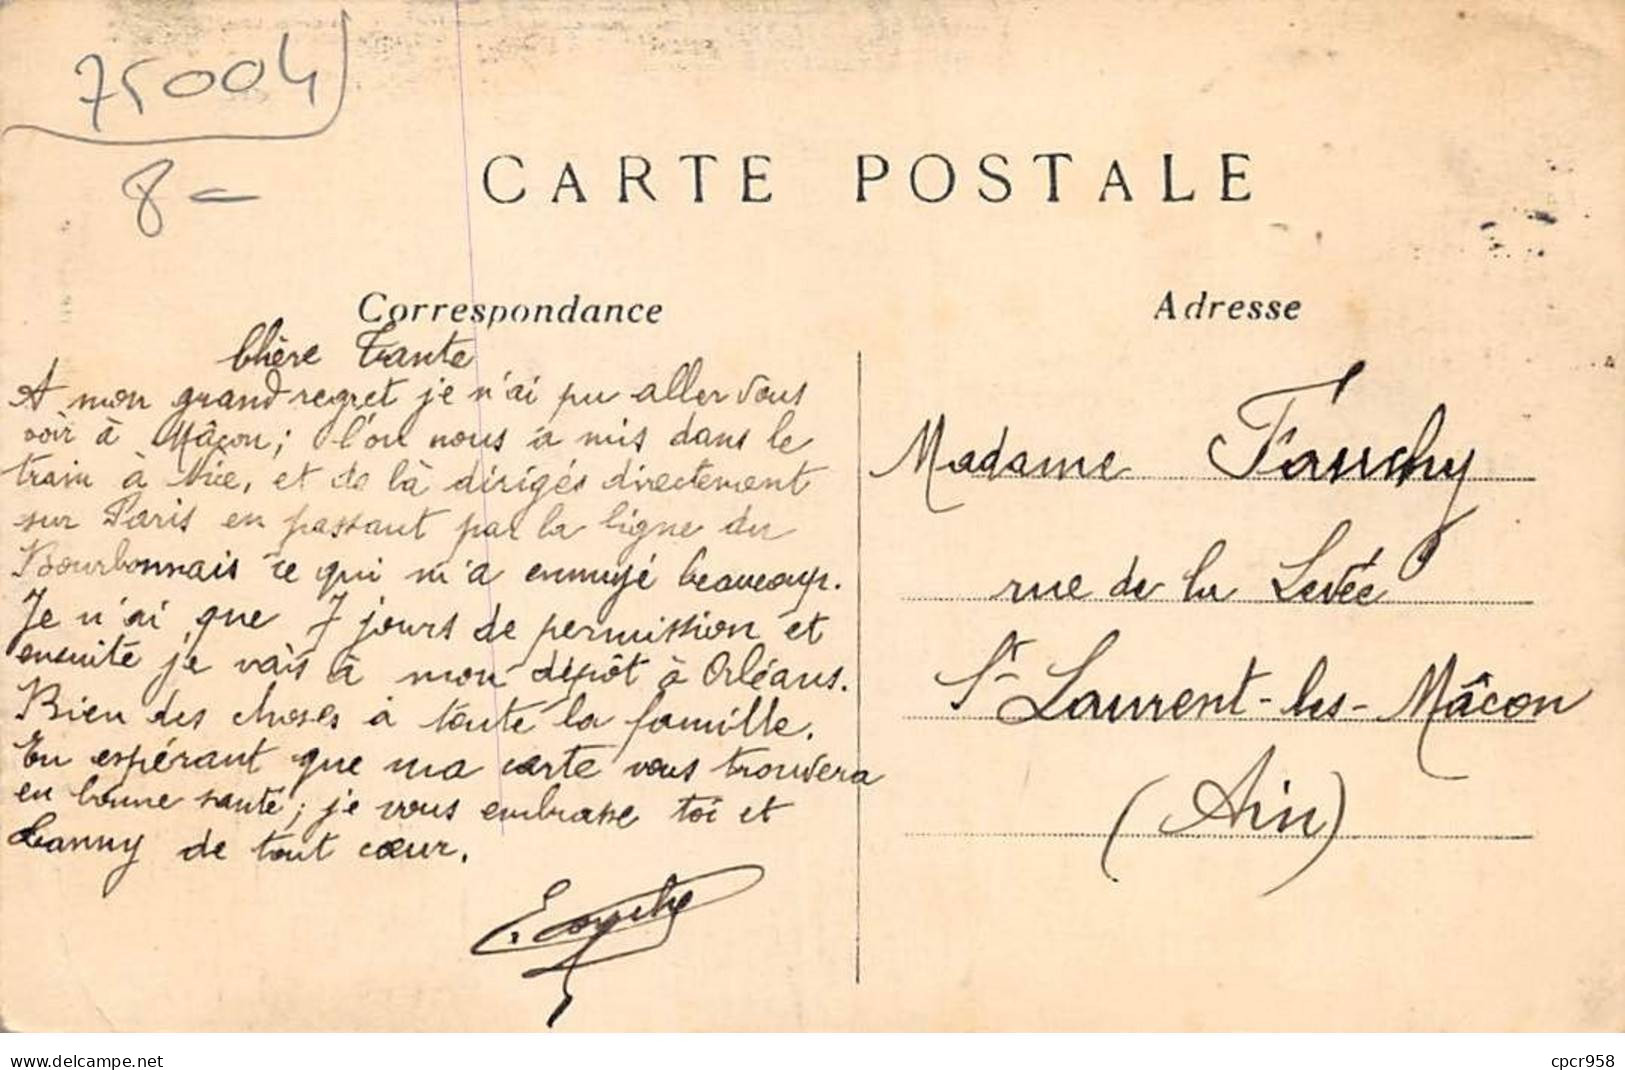 75004
8 =
CARTE POSTALE
Correspondance
Adresse
Chère Tante
A mon grand regret je n'ai pu aller vous
voir à Mâcon; l'on nous a mis dans le
train à Nice, et de là dirigés directement
sur Paris en passant par la ligne du
Bourbonnais ce qui m'a ennuyé beaucoup.
Je n'ai que 7 jours de permission et
ensuite je vais à mon dépôt à Orléans.
Bien des choses à toute la famille.
En espérant que ma carte vous trouvera
en bonne santé; je vous embrasse toi et
Fanny de tout cœur.
Madame Fauchy
rue de la Levée
St Laurent-les-Mâcon
(Ain)
www.delcampe.net
cpcr958